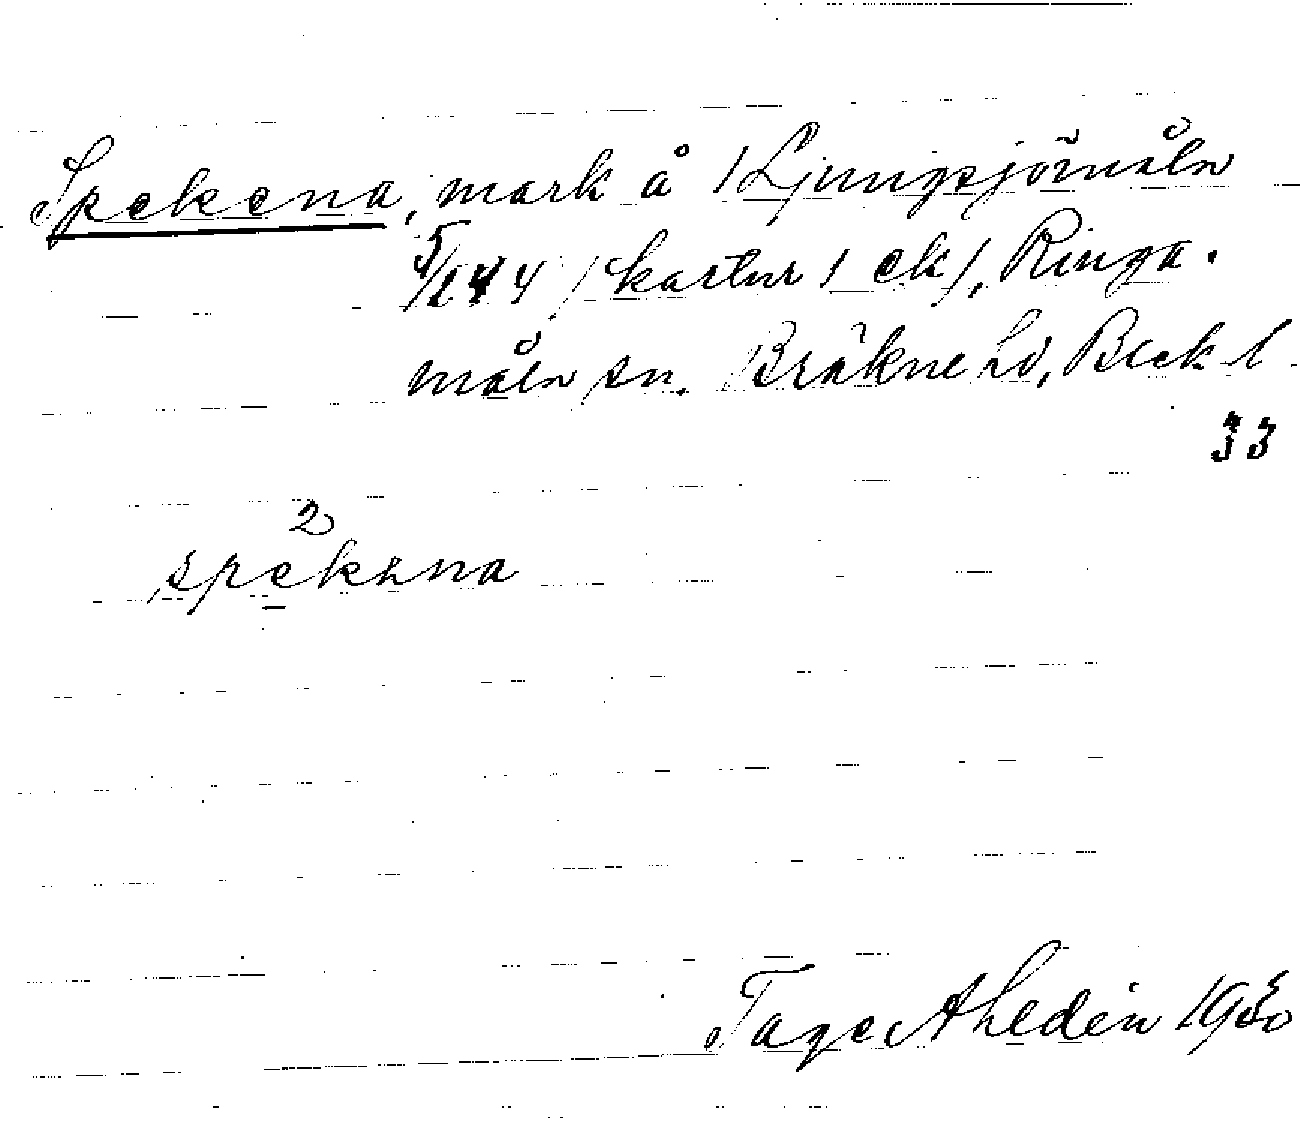 Spekena, mark å 1 Ljungsjömåla
5/144 /kartnr 1 ck/, Ringa-
måla sn. Bräkne hd, Blek l.
33
2
spekna
Tage Ahldén 1930